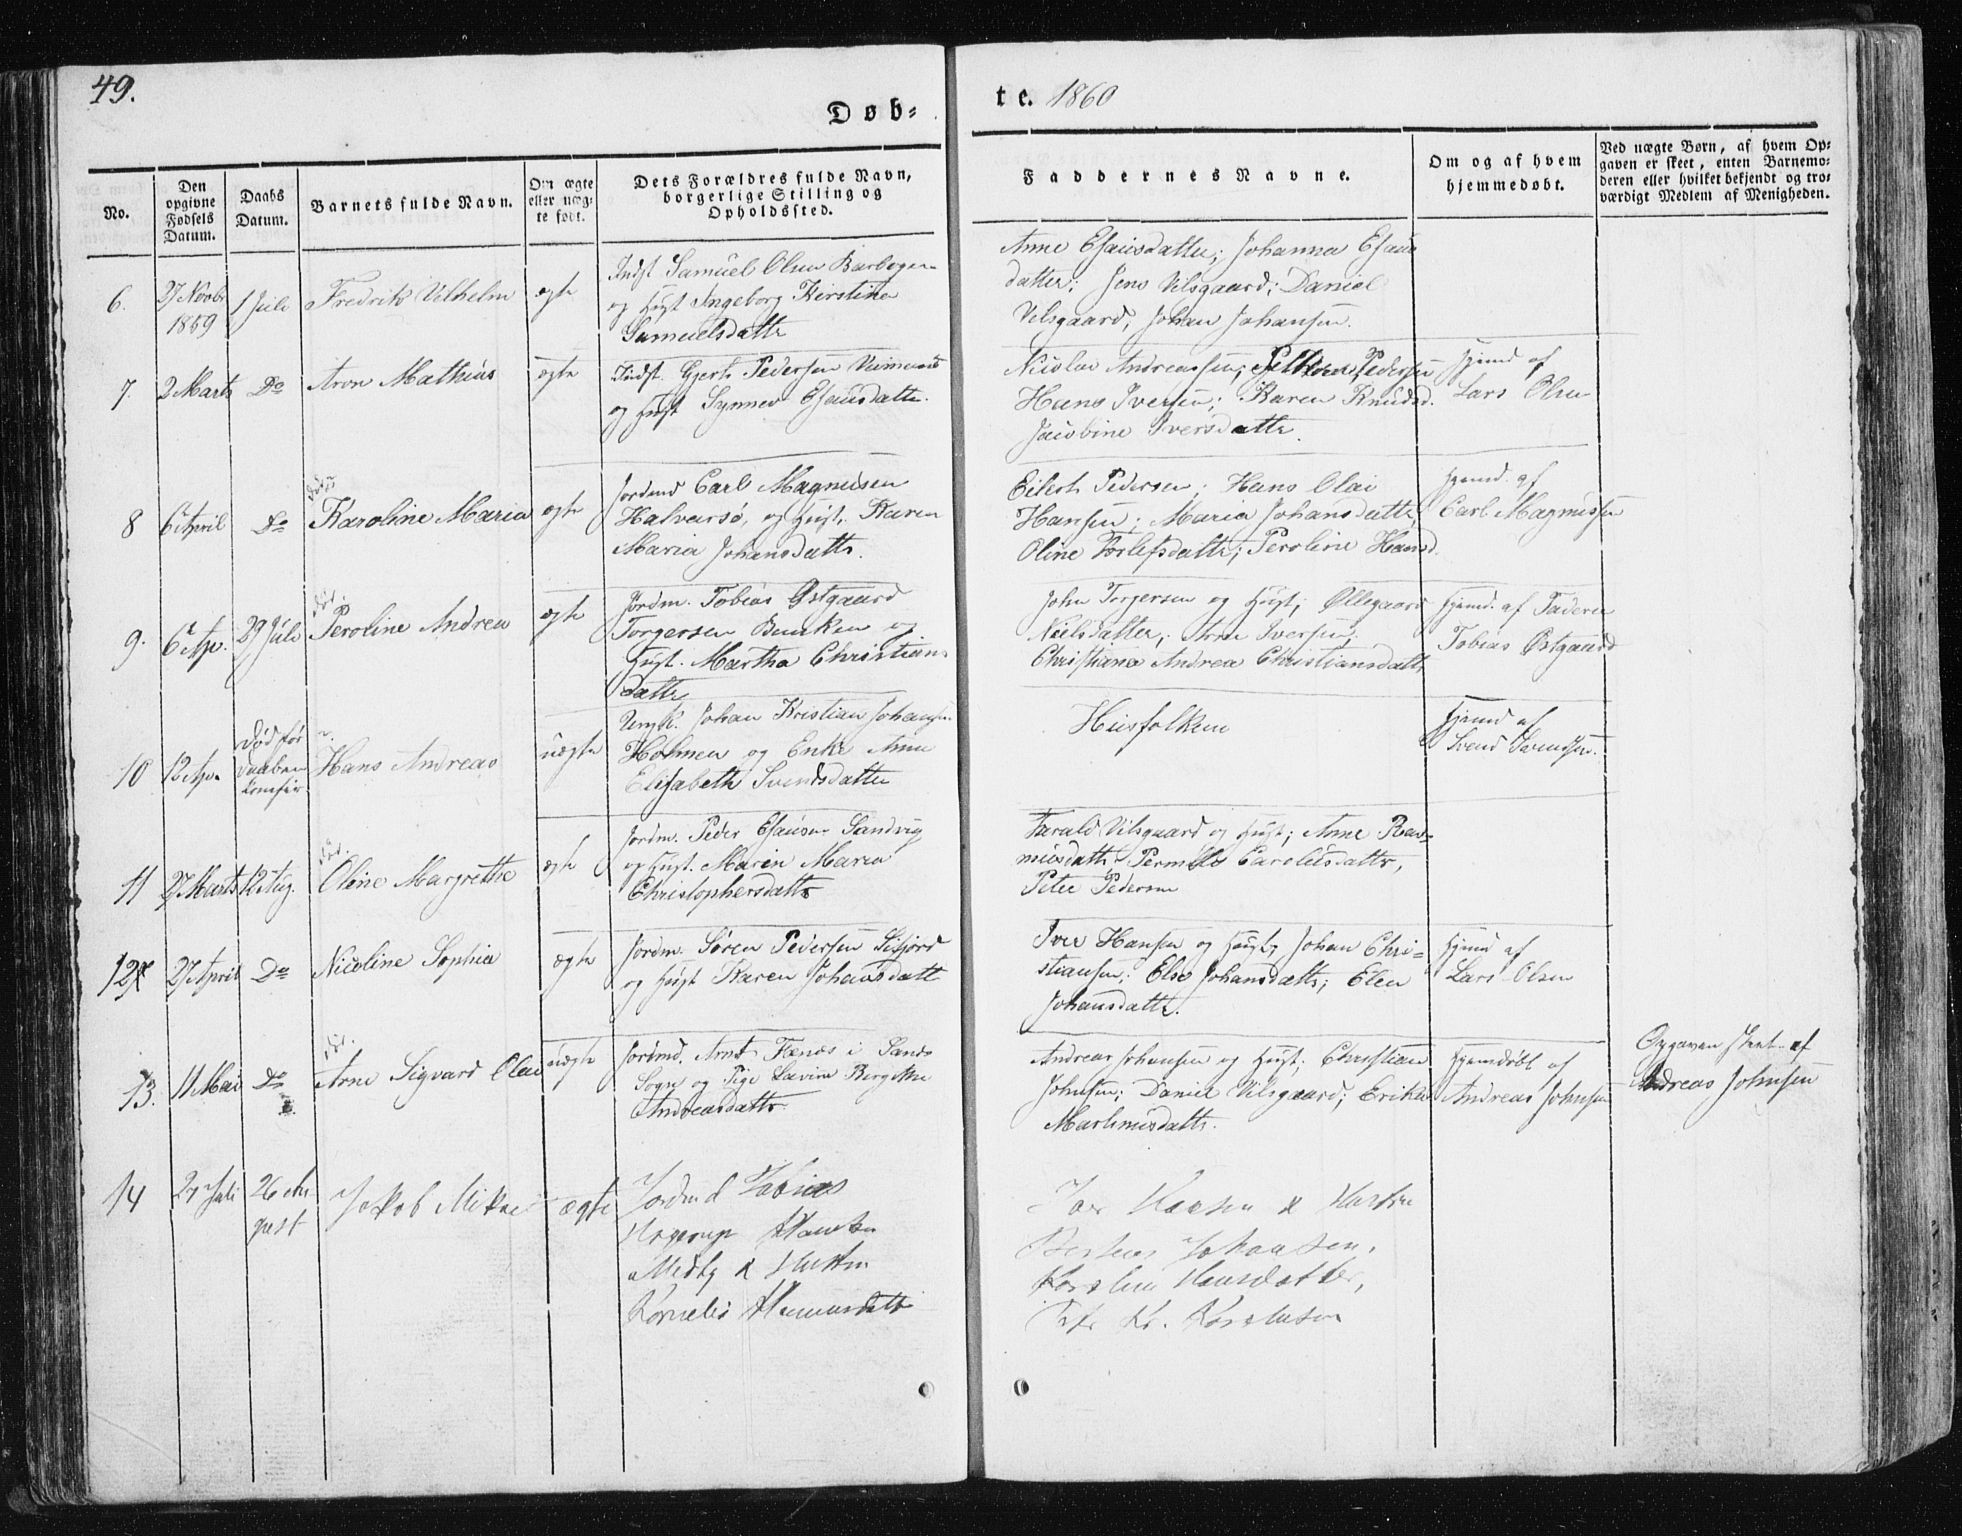 49.
Døb-
te. 1860
No.
Den opgivne Fødsels Datum.
Daabs Datum.
Barnets fulde Navn.
Om ægte eller uægte født.
Dets Forældres fulde Navn, borgerlige Stilling og Opholdssted.
Faddernes Navne.
Om og af hvem hjemmedøbt.
Ved uægte Børn, af hvem Opgaven er skeet, enten Barnemoderen eller hvilket bekjendt og troværdigt Medlem af Menigheden.
6. 27 Novbr 1859 1 Juli Fredrik Vilhelm ægte
Indst Samuel Olsen Barbogen
og Hust Ingeborg Kirstine
Samuelsdatte
Anne Esausdatter; Johanna Esaus
datter; Jens Vilsgaard; Daniel
Velsgaard; Johan Johansen.
7. 2 Marts Do Aron Mathias ægte
Indst. Gjert Pedersen
og Hust Synnev Esausdatte.
Nicolai Andreassen; Pedersen
Hans Iversen; Karen Knudsd.
Jacobine Iversdatte.
Hjemd af
Lars Olsen
8 6 April Do Karoline Maria ægte
Jordmd Carl Magnusen
Halvarsø, og Hust. Karen
Maria Johansdatte.
Eilert Pedersen; Hans Olai
Hansen; Maria Johansdatte,
Oline Torlefsdatte; Peroline Hansd.
Hjemd. af
Carl Magnussen
9. 6 Ap. 29 Juli Peroline Andrea ægte
Jordm. Tobias Østgaard
Torgersen Bunken og
Hust. Martha Christians
datte
John Torgersen og Hust; Øllegaard
Nielsdatter; Arn Iversen;
Christiana Andrea Christiansdatte
Hjemd. af Faderen
Tobias Østgaard
10 12 Ap. Død før Daaben Hans Andreas uægte
Ungk. Johan Kristian Johansen
Holmen og Enke Anne
Elisabeth Svendsdatter
Husfolkene
Hjemd af
Svend Svendsen.
11 27 Marts 12 Aug. Oline Margrethe ægte
Jordm. Peder Esausen Sandvig
og Hust. Maren Maria
Christophersdatte
Harald Vilsgaard og Hust; Anne Ras-
musdatte Pernille Caroliusdatte,
Peter Pedersen
12 27 April Do Nicoline Sophia ægte
Jordm. Søren Pedersen Sifjord
og Hust Karen Johansdatt
Iver Hansen og Hust; Johan Chri-
stiansen; Else Johansdatte; Elen
Johansdatte.
Hjemd af
Lars Olsen
13. 11 Mai Do Arne Sigvard Olai uægte
Jordmd. Arnt Finnes i Sands
Sogn og Pige Lavine Bergithe
Andreasdatte
Andreas Johnsen og Hust; Christian
Johnsen; Daniel Vilsgaard; Erika
Martinusdatte.
Hjemdøbt af
Andreas Johnsen
Opgaven skeet af
Andreas Johnsen
14 27 Juli 26 August Jakob Mikael ægte
Jordmd Tobias
Hagerup Hansen
Medby & Hustru
Kornelia
Iver Hansen & Hustru
Johansen,
Karoline Hansdatter,
Kr.